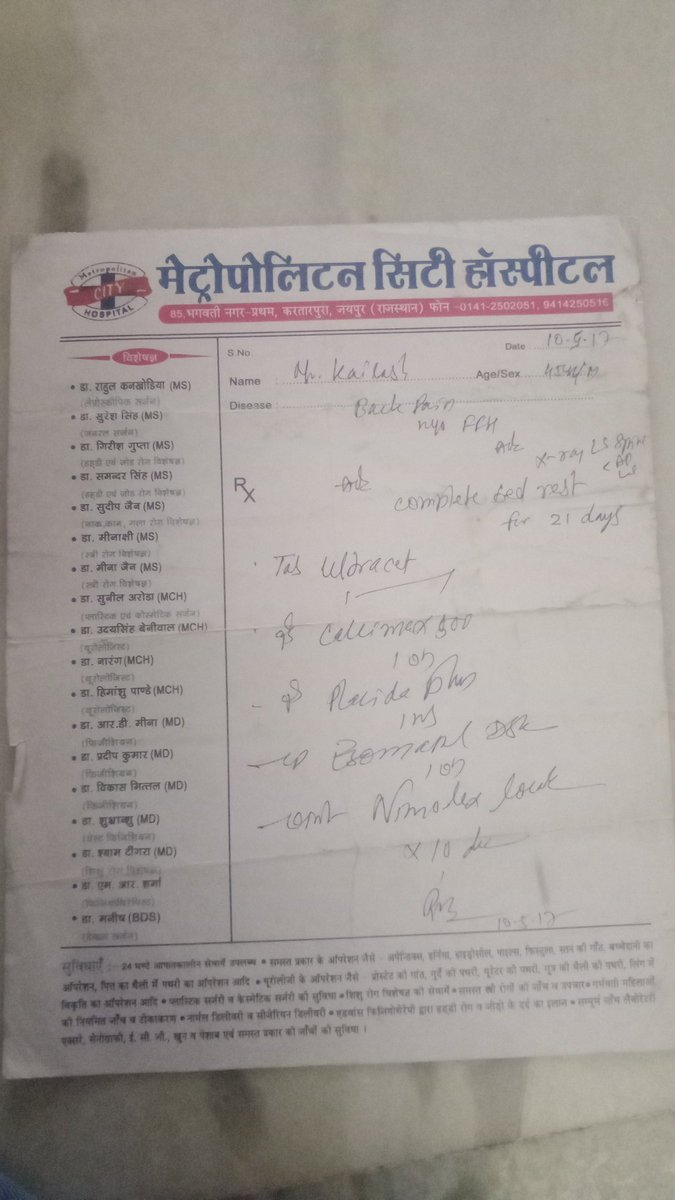 Metropolitan
CITY
HOSPITAL
मेट्रोपोलिटन सिटी हॉस्पीटल
85, भगवती नगर-प्रथम, करतारपुरा, जयपुर (राजस्थान) फोन -0141-2502051, 9414250516
S.No.
Date 10-5-17
Name : Mr. Kailash Age/Sex 45y/M
Disease : Back Pain
विशेषज्ञ
• डा. राहुल कनखोडिया (MS)
(लेप्रोस्कोपिक सर्जन)
• डा. सुरेश सिंह (MS)
(जनरल सर्जन)
• डा. गिरीश गुप्ता (MS)
(हड्डी एवं जोड रोग विशेषज्ञ)
• डा. समन्दर सिंह (MS)
(हड्डी एवं जोड रोग विशेषज्ञ)
• डा. सुदीप जैन (MS)
(नाक, कान, गला रोग विशेषज्ञ)
• डा. मीनाक्षी (MS)
(स्त्री रोग विशेषज्ञ)
• डा. मीना जैन (MS)
(स्त्री रोग विशेषज्ञ)
• डा. सुनील अरोडा (MCH)
(प्लास्टिक एवं कॉस्मेटिक सर्जन)
• डा. उदयसिंह बेनीवाल (MCH)
(यूरोलोजिस्ट)
• डा. नारंग (MCH)
(यूरोलोजिस्ट)
• डा. हिमांशु पाण्डे (MCH)
(यूरोलोजिस्ट)
• डा. आर.डी. मीना (MD)
(फिजीशियन)
• डा. प्रदीप कुमार (MD)
(फिजीशियन)
• डा. विकास मित्तल (MD)
(फिजीशियन)
• डा. शुभ्रान्शु (MD)
(चेस्ट फिजिशियन)
• डा. श्याम टीगरा (MD)
(शिशु रोग विशेषज्ञ)
• डा. एम. आर. शर्मा
• डा. मनीष (BDS)
(डेन्टल सर्जन)
Adv X-ray LS Spine
AP
Rx
Adv complete bed rest
for 21 days
Tab Ultracet
Callimax 500
1 OD
Placida Plus
1 HS
Esomapil DSR
1 OD
oint Nimolex local
x 10 day
10-5-17
सुविधाएँ :- 24 घण्टे आपातकालीन सेवायें उपलब्ध • समस्त प्रकार के ऑपरेशन जैसे - अपेन्डिक्स, हर्निया, हाइड्रोसील, पाइल्स, फिस्टुला, स्तन की गाँठ, बच्चेदानी का
ऑपरेशन, पित्त का थैली में पथरी का ऑपरेशन आदि • यूरोलोजी के ऑपरेशन जैसे - प्रोस्टेट की गांठ, गुर्दे की पथरी, यूरेटर की पथरी, मूत्र की थैली की पथरी, लिंग में
विकृति का ऑपरेशन आदि • प्लास्टिक सर्जरी व केस्मेटिक सर्जरी की सुविधा • शिशु रोग विशेषज्ञ की सेवायें • समस्त स्त्री रोगों की जाँच व उपचार • गर्भवती महिलाओं
की नियमित जाँच व टीकाकरण • नार्मल डिलीवरी व सीजेरियन डिलीवरी • एडवांस फिजियोथेरेपी द्वारा हड्डी रोग व जोड़ो के दर्द का इलाज • सम्पूर्ण जाँच लैबोरेटरी
एक्सरे, सोनोग्राफी, ई. सी. जी., खून व पेशाब एवं समस्त प्रकार की जाँचों की सुविधा ।